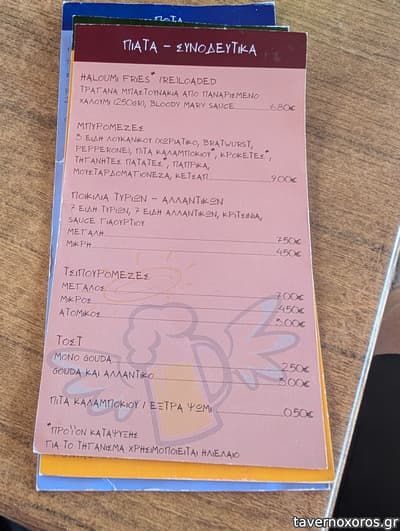 ΠΟΤΑ
ΠΙΑΤΑ - ΣΥΝΟΔΕΥΤΙΚΑ
HALOUMI FRIES* /RELOADED
ΤΡΑΓΑΝΑ ΜΠΑΣΤΟΥΝΑΚΙΑ ΑΠΟ ΠΑΝΑΡΙΣΜΕΝΟ
ΧΑΛΟΥΜΙ (250GR), BLOODY MARY SAUCE 6.80€
ΜΠΥΡΟΜΕΖΕΣ
3 ΕΙΔΗ ΛΟΥΚΑΝΙΚΟΥ (ΧΩΡΙΑΤΙΚΟ, BRATWURST,
PEPPERONE), ΠΙΤΑ ΚΑΛΑΜΠΟΚΙΟΥ*, ΚΡΟΚΕΤΕΣ*,
ΤΗΓΑΝΗΤΕΣ ΠΑΤΑΤΕΣ*, ΠΑΠΡΙΚΑ,
ΜΟΥΣΤΑΡΔΟΜΑΓΙΟΝΕΖΑ, ΚΕΤΣΑΠ 9.00€
ΠΟΙΚΙΛΙΑ ΤΥΡΙΩΝ - ΑΛΛΑΝΤΙΚΩΝ
7 ΕΙΔΗ ΤΥΡΙΩΝ, 7 ΕΙΔΗ ΑΛΛΑΝΤΙΚΩΝ, ΚΡΙΤΣΙΝΙΑ,
SAUCE ΓΙΑΟΥΡΤΙΟΥ
ΜΕΓΑΛΗ 7.50€
ΜΙΚΡΗ 4.50€
ΤΣΙΠΟΥΡΟΜΕΖΕΣ
ΜΕΓΑΛΟΣ 7.00€
ΜΙΚΡΟΣ 4.50€
ΑΤΟΜΙΚΟΣ 3.00€
ΤΟΣΤ
ΜΟΝΟ GOUDA 2.50€
GOUDA ΚΑΙ ΑΛΛΑΝΤΙΚΟ 3.00€
ΠΙΤΑ ΚΑΛΑΜΠΟΚΙΟΥ / ΕΞΤΡΑ ΨΩΜΙ 0.50€
*ΠΡΟΪΟΝ ΚΑΤΑΨΥΞΗΣ
ΓΙΑ ΤΟ ΤΗΓΑΝΙΣΜΑ ΧΡΗΣΙΜΟΠΟΙΕΙΤΑΙ ΗΛΙΕΛΑΙΟ
tavernoxoros.gr